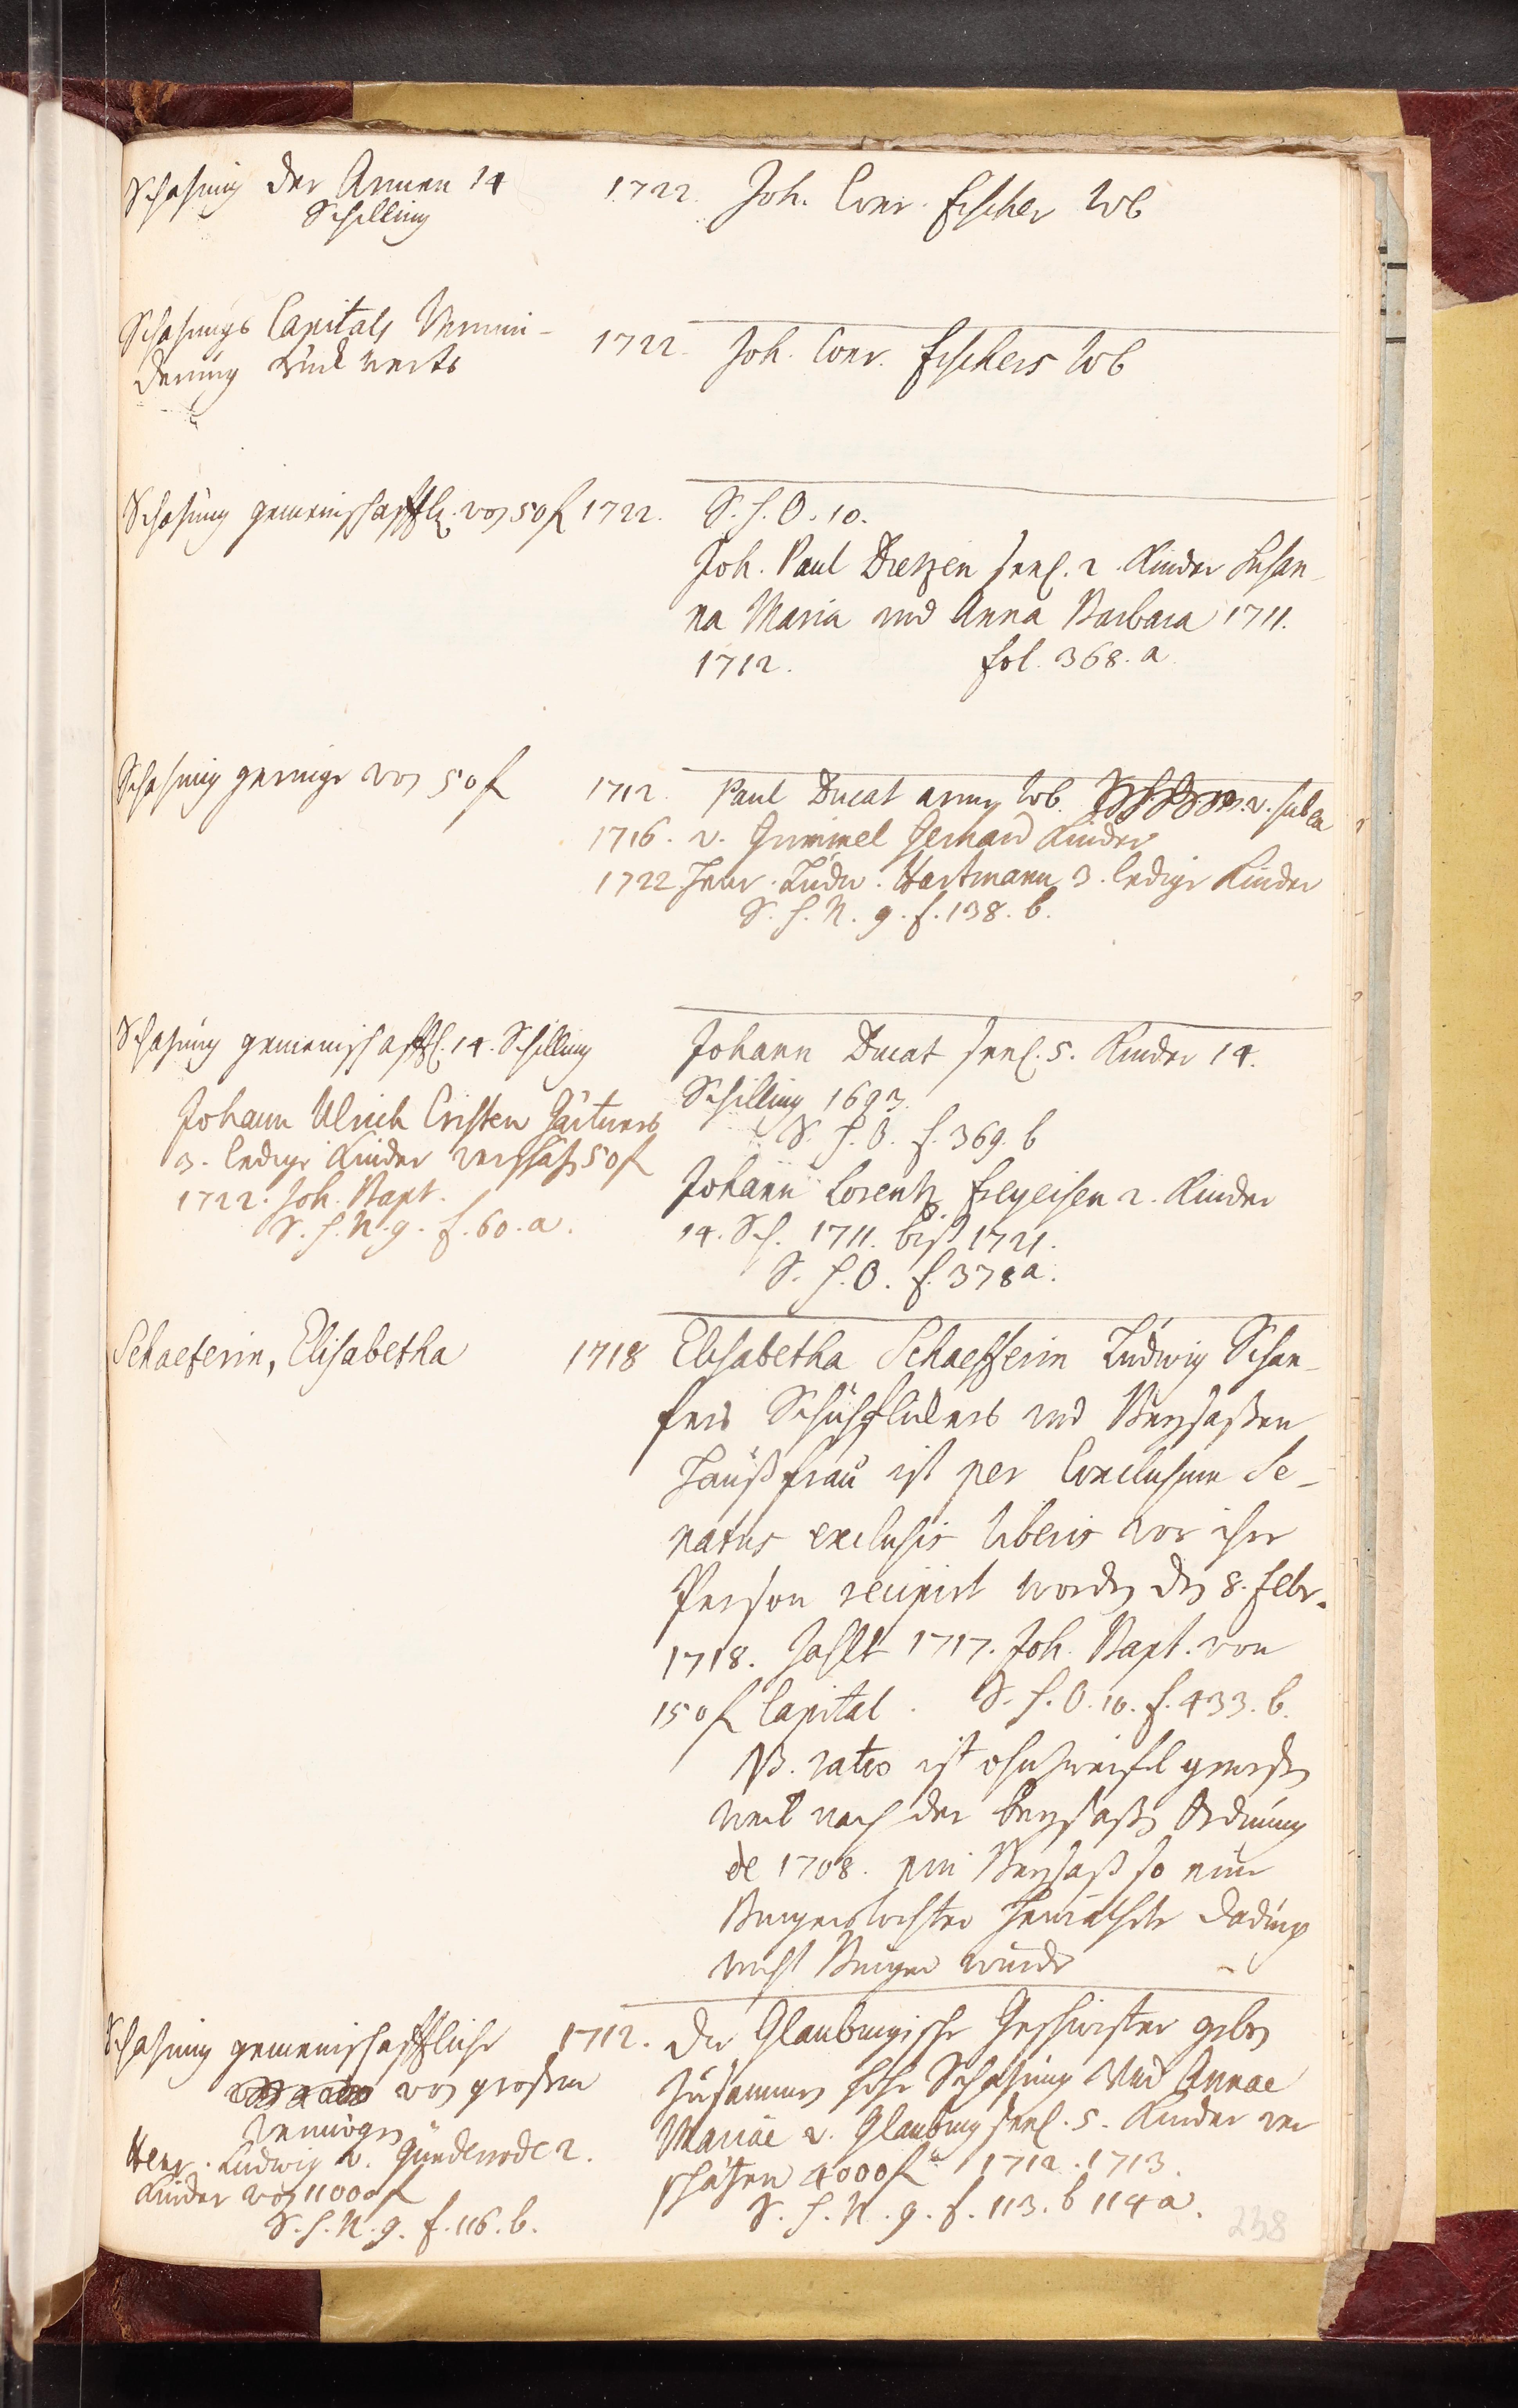 Schatzung der Armen 14
Schilling
1722. Joh. Conr. Fischer Wb
Schatzungs Capitals Vermin-
derung ruckwerts
1722. Joh. Conr. Fischers Wb
Schatzung gemeinschafftl. von 50 f 1722.
S. S. O. 10.
Joh. Paul Dietzen seel. 2. Kinder Susan-
na Maria und Anna Barbara 1711.
1712. fol. 368. a
Schatzung geringe von 50 f
1712. Paul Ducat arme Wb.
1716. v. Grimmel Gerhard Kinder
1722. Henr. Ludw. Hartmann 3. ledige Kinder
S. S. N. 9. f. 138. b.
Schatzung gemeinschafftl. 14. Schilling
Johann Ulrich Christen Gärtners
3. ledige Kinder verschatz 50 f
1722. Joh. Bapt.
S. S. N. 9. f. 60. a.
Johann Ducat seel. 5. Kinder 14.
Schilling 1693.
S. S. O. f. 369. b
Johann Lorentz Freyeisen 2. Kinder
14. Sch. 1711. biß 1721.
S. S. O. f. 378 a.
Schaeferin, Elisabetha
1718 Elisabetha Schaefferin Ludwig Schae-
fers Schuhflickers und Beysaßen
Haußfrau ist per Conclusum Se-
natus exclusis liberis vor ihre
Person recipirt worden den 8. Febr.
1718. Zahlt 1717. Joh. Bapt. von
150 f Capital. S. S. O. 10. f. 433. b.
NB. ratio ist ohnzweifel gewesen
weil nach der beysaßen Ordnung
de 1708. ein Beysaß so eine
Burgerstochter heurathete dadurch
nicht Burger wurde
Schatzung gemeinschafftliche
von großem
Vermögen
Henr. Ludwig v. Günderrode 2.
Kinder von 11000 f
S. S. N. 9. f. 116. b.
1712. Die Glauburgische Geschwister geben
zusammen hohe Schatzung Und Annae
Mariae v. Glauburg seel. 5. Kinder ver
schatzen 4000 f 1712. 1713.
S. S. N. 9. f. 113. b 114 a.
238